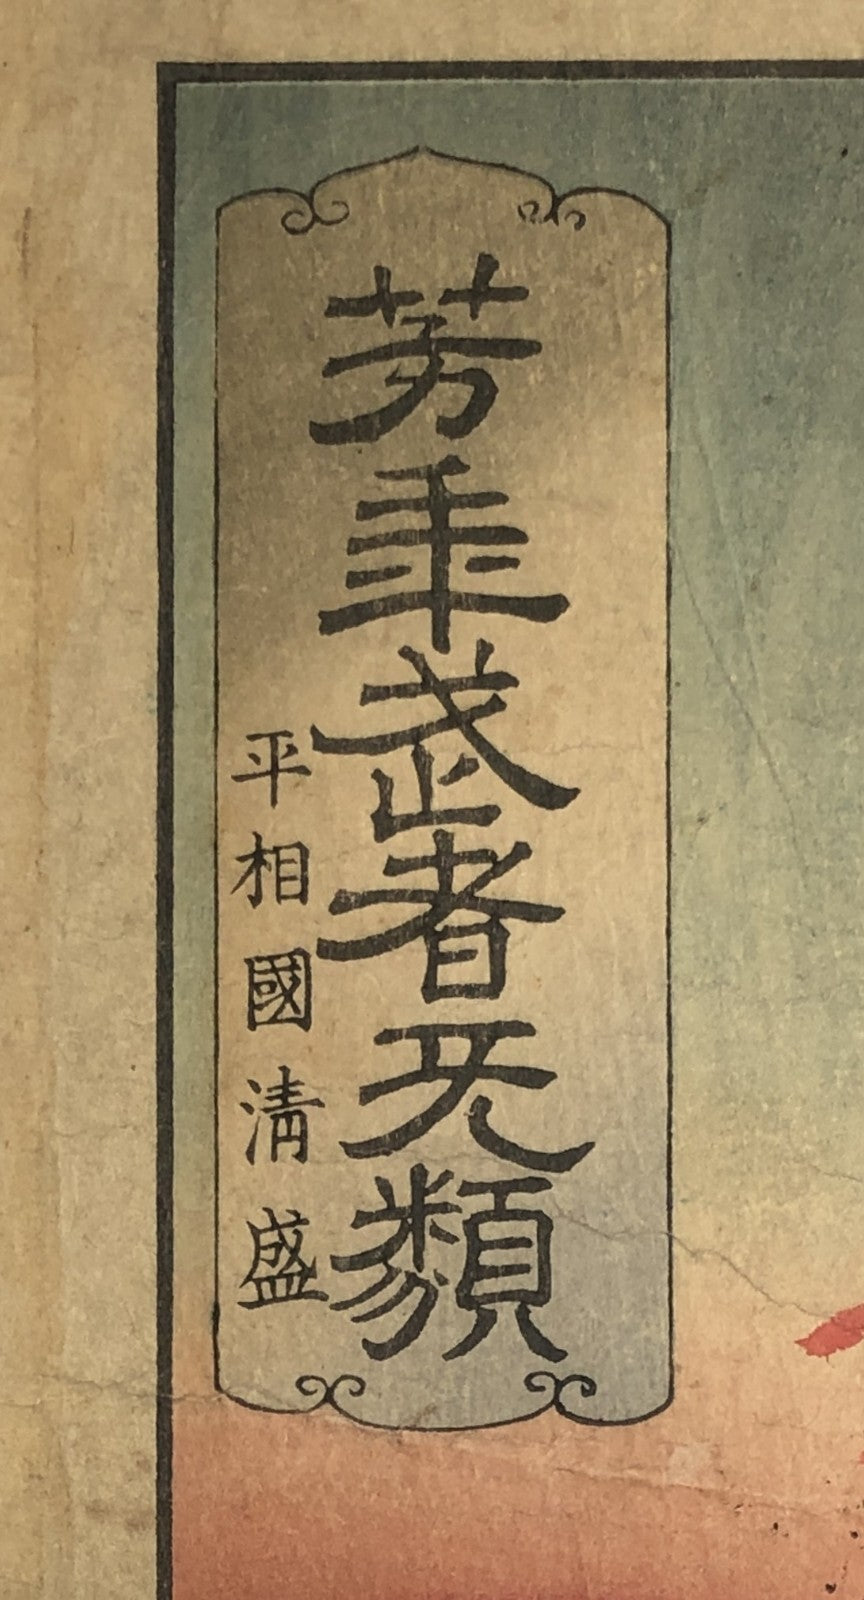 芳年武者旡類
平相國清盛